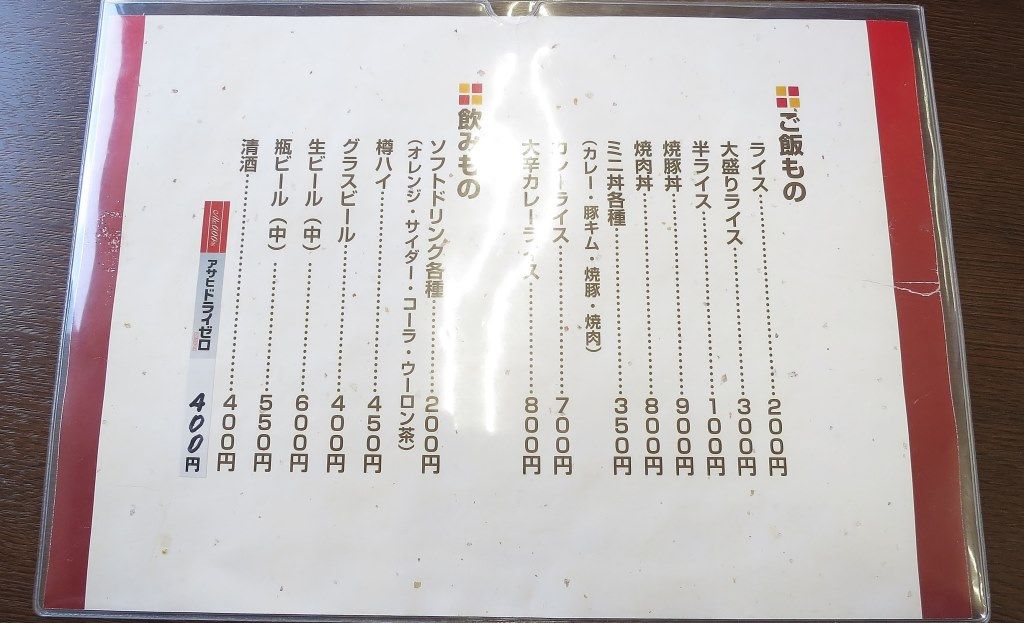 ご飯もの
ライス…………200円
大盛りライス…………300円
半ライス…………100円
焼豚丼…………900円
焼肉丼…………800円
ミニ丼各種…………350円
(カレー・豚キム・焼豚・焼肉)
カツライス…………700円
大辛カレーライス…………800円
飲みもの
ソフトドリンク各種…………200円
(オレンジ・サイダー・コーラ・ウーロン茶)
樽ハイ…………450円
グラスビール…………400円
生ビール(中)…………600円
瓶ビール(中)…………550円
清酒…………400円
アサヒドライゼロ 400円